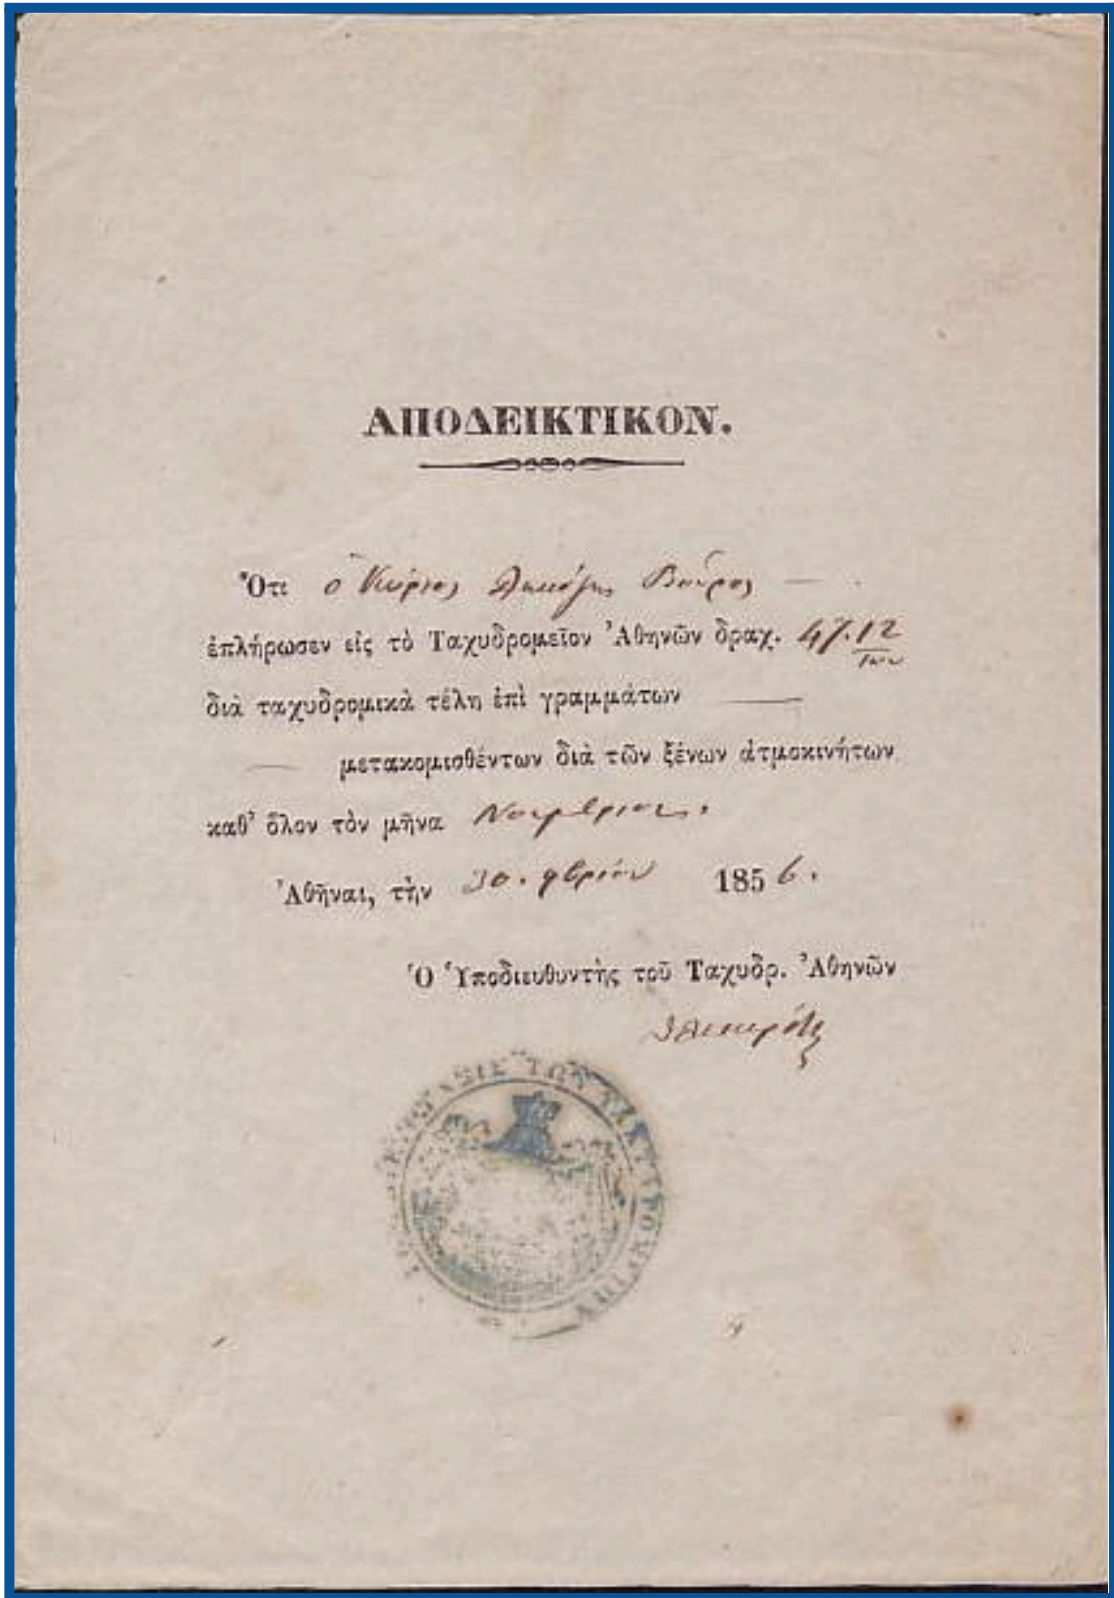 ΑΠΟΔΕΙΚΤΙΚΟΝ.
Ὅτι ὁ Κύριος Βοῦρος
ἐπλήρωσεν εἰς τὸ Ταχυδρομεῖον Ἀθηνῶν δραχ. 47.12
διὰ ταχυδρομικὰ τέλη ἐπὶ γραμμάτων
μετακομισθέντων διὰ τῶν ξένων ἀτμοκινήτων
καθ' ὅλον τὸν μῆνα Νοέμβριον.
Ἀθῆναι, τὴν 30. 9βρίου 1856.
Ὁ Ὑποδιευθυντὴς τοῦ Ταχυδρ. Ἀθηνῶν
ΤΩΝ